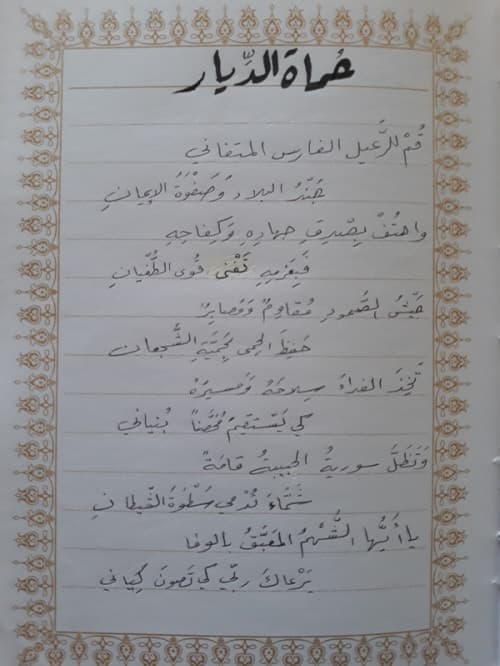 حُماة الدِّيار
قُمْ للرَّعيل الفارس المتفاني
جُنْدُ البلادِ وَصَفْوَةُ الإيمانِ
واهتُفْ بِصْدقِ جهادِهِ وَكِفاحِهِ
فَبِعَزمِهِ تَفْنى قُوى الطُّغْيانِ
جَيْشُ الصُّمودِ مُقاومٌ وَمُصابِرٌ
حَفِظَ الحِمى بِحَمِيَّةِ الشُّجعان
تَّخِذَ الفداءَ سِلاحَهُ وَمسيرَهُ
كي يَسْتقيمَ مُحَصَّناً بُنياني
وَتَظلَّ سوريةُ الحبيبةُ قامَةً
شَمَّاءَ تُدْمي سَطْوَةَ القِيطانِ
يا أيُّها الشَّهْمُ المعَبَّقُ بالوفا
يَرْعاكَ ربِّي كي تَصونَ كِياني